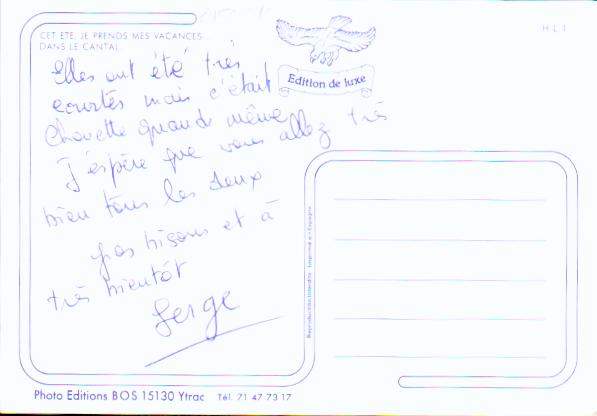 CET ETE, JE PRENDS MES VACANCES...
DANS LE CANTAL.
H L 1
Edition de luxe
Elles ont été très
courtes mais c'était
Chouette quande même
J'espère que vous allez très
bien tous les deux
gros bisous et à
très bientôt
Serge
Reproduction interdite - Imprimé en Espagne
Photo Editions BOS 15130 Ytrac Tél. 71 47 73 17